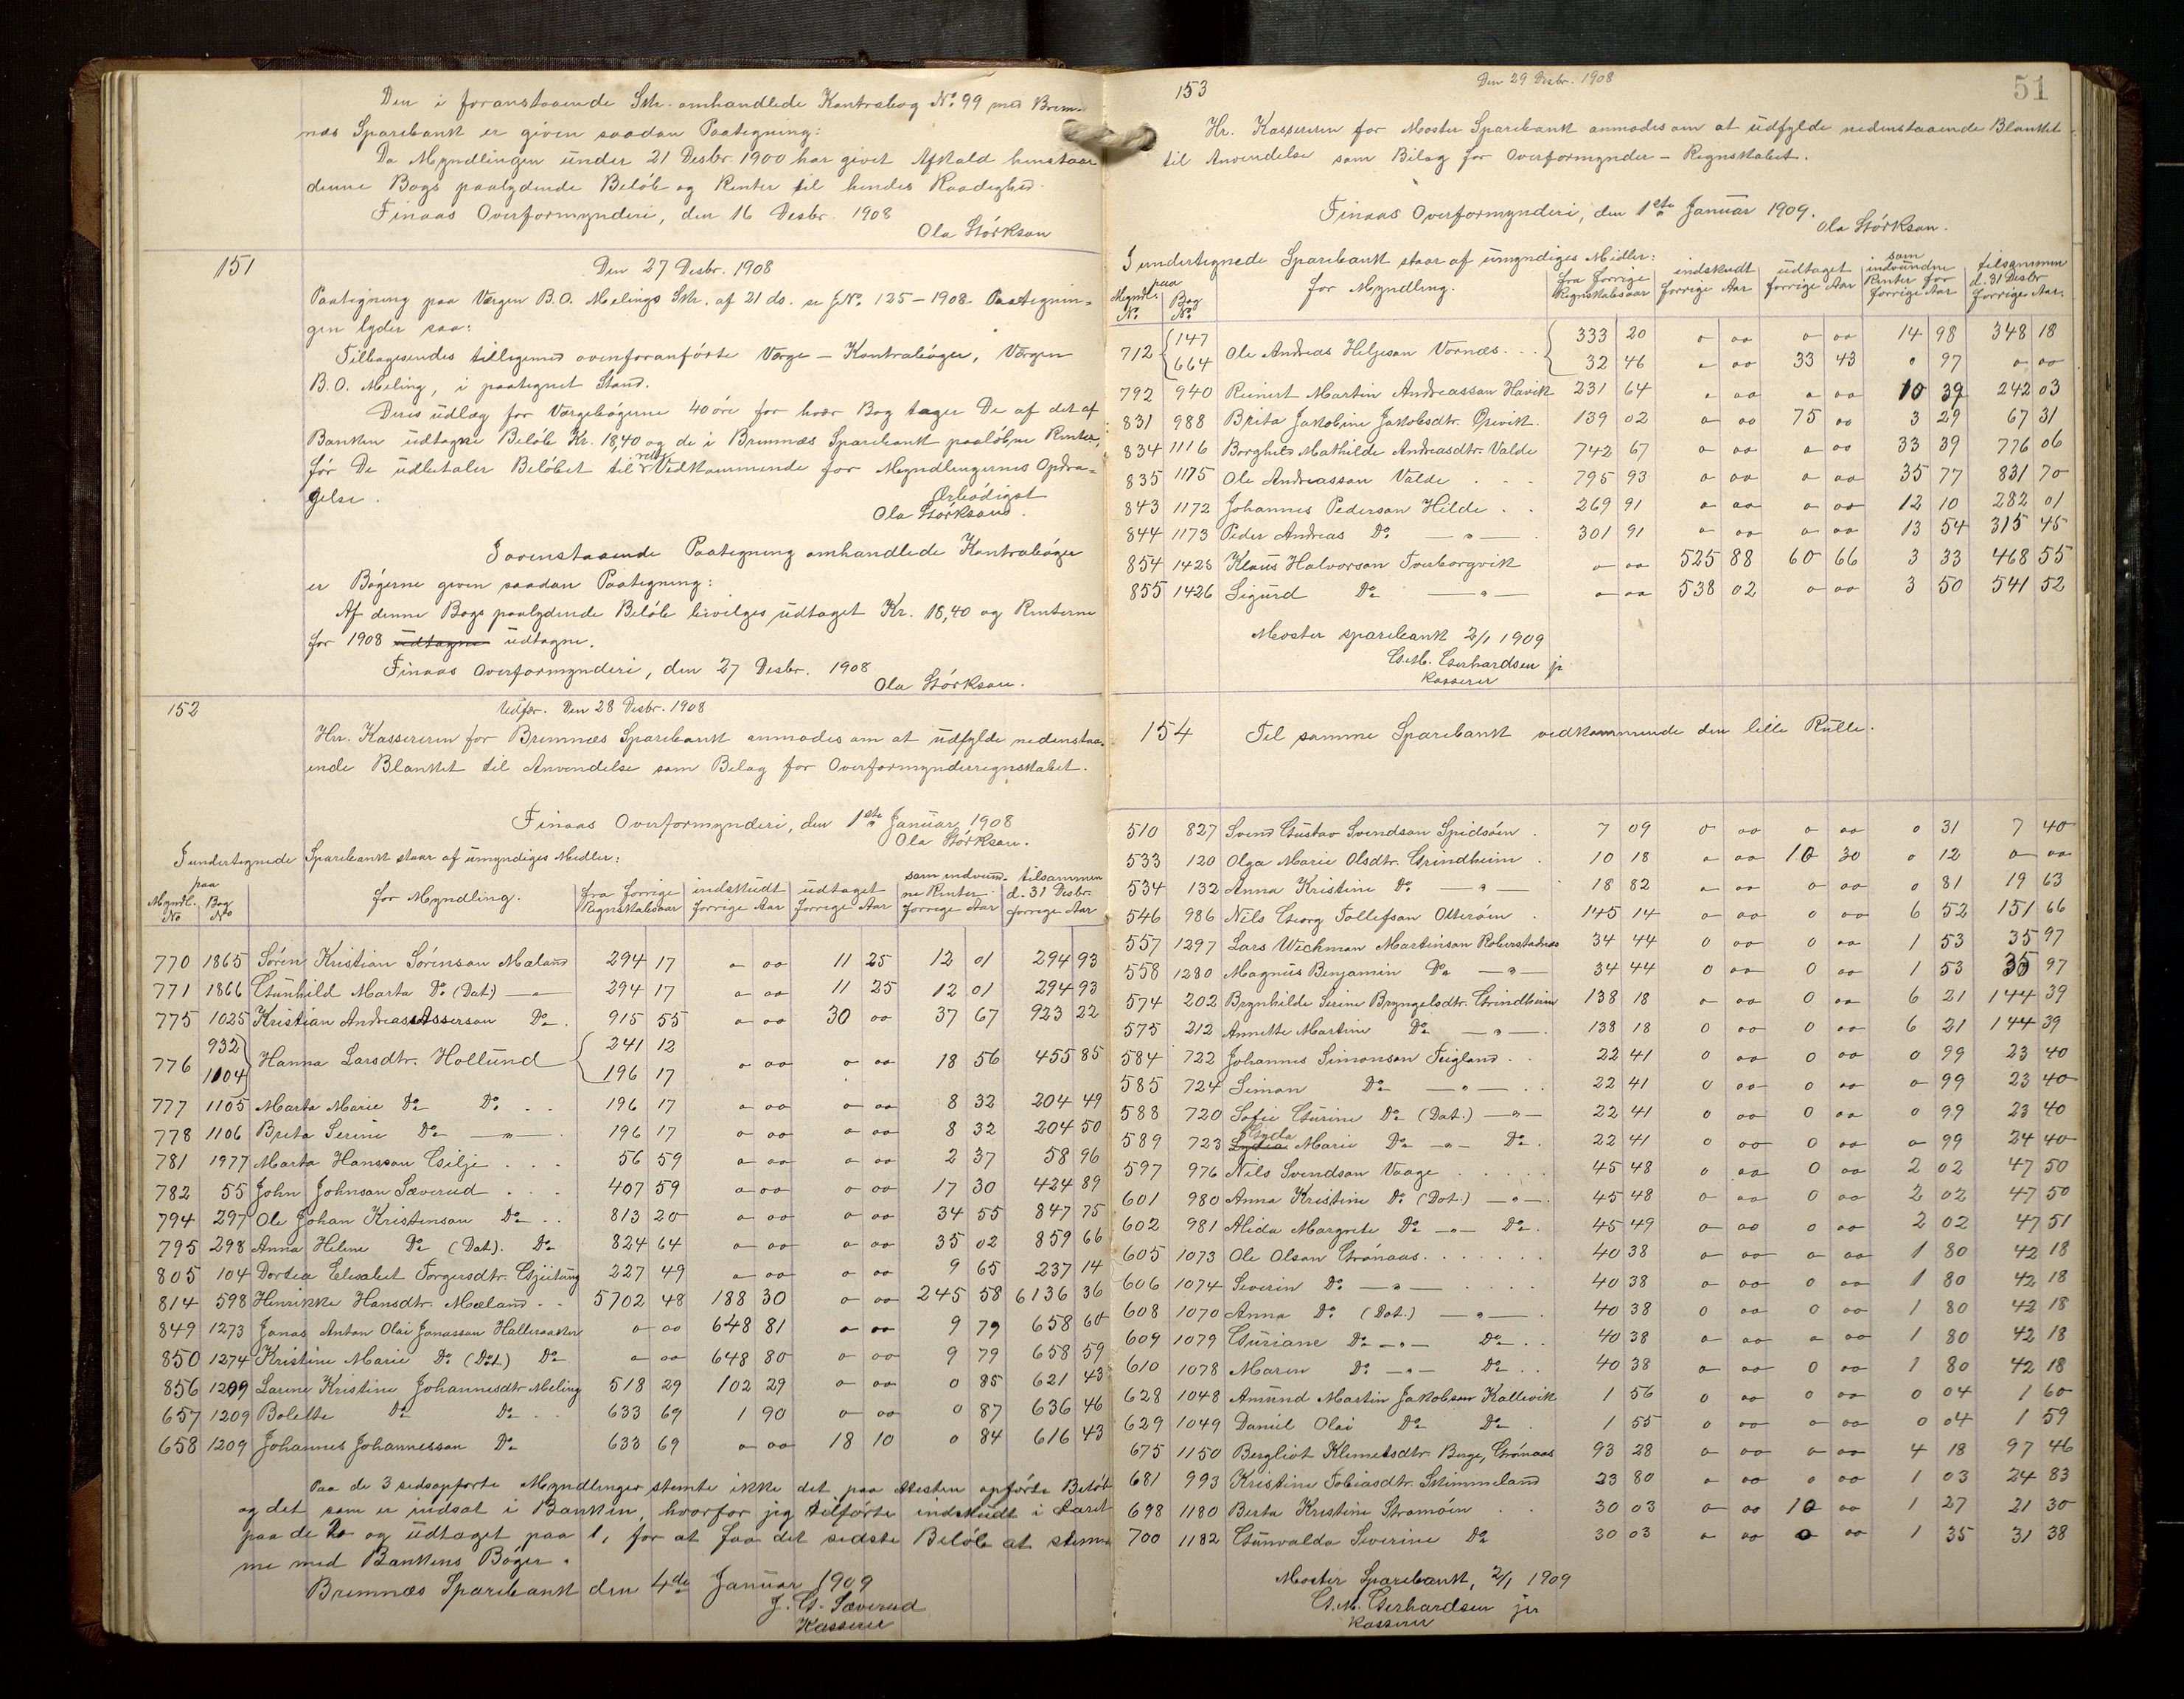 Den i foranstaaende Skr. omhandlede Kontrabog No. 99 med Brem-
næs Sparebank er given saadan Paategning:
Da Myndlingen under 21 Desbr. 1900 har givet Afkald henstaar
denne Bogs paalydende Beløb og Renter til hendes Raadighed.
Finaas Overformynderi, den 16 Desbr. 1908
Ola Størkson
151
Den 27 Desbr. 1908
Paategning paa Værgen B.O. Melings Skr. af 21 ds. se J.No. 125-1908. Paategnin-
gen lyder saa:
Tilbagesendes tilligemed ovenforanførte Værge-Kontrabøger, Værgen
B.O. Meling, i paategnet Stand.
Deres udlæg for Værgebøgerne 40 øre for hver Bog tager De af det af
Banken udtagne Beløb Kr. 18,40 og de i Bremnæs Sparebank paaløbne Renter,
før De udbetaler Beløbet til rette Vedkommende for Myndlingernes Opdra-
gelse.
Ærbødigst
Ola Størkson.
I ovenstaaende Paategning omhandlede Kontrabøger
er Bøgerne given saadan Paategning:
Af denne Bogs paalydende Beløb bevilges udtaget Kr. 18,40 og Renterne
for 1908 udtagne udtagne.
Finaas Overformynderi, den 27 Desbr. 1908
Ola Størkson.
152
Udfær. Den 28 Desbr. 1908
Hr. Kassereren for Bremnæs Sparebank anmodes om at udfylde nedenstaa-
ende Blanket til Anvendelse som Bilag for Overformynderregnskabet.
Finaas Overformynderi, den 1ste Januar 1908
Ola Størkson.
I undertegnede Sparebank staar af umyndiges Midler:
Myndl. No paa Bog No for Myndling. fra forrige Regnskabsaar indskudt forrige Aar udtaget forrige Aar som indvund-ne Renter forrige Aar tilsammen d. 31 Desbr. forrige Aar
770 1865 Søren Kristian Sørenson Mæland 294 17 0 00 11 25 12 01 294 93
771 1866 Gunhild Marta Do (Dat.) — 294 17 0 00 11 25 12 01 294 93
775 1025 Kristian Andreas Asserson Do. 915 55 0 00 30 00 37 67 923 22
776 932 1104 Hanna Larsdtr. Hollund 241 12 196 17 0 00 0 00 18 56 455 85
777 1105 Marta Marie Do Do . . 196 17 0 00 0 00 8 32 204 49
778 1106 Brita Serine Do —"— . 196 17 0 00 0 00 8 32 204 50
781 1977 Marta Hansson Gilje . . . 56 59 0 00 0 00 2 37 58 96
782 55 John Johnson Sæverud . . . 407 59 0 00 0 00 17 30 424 89
794 297 Ole Johan Kristenson Do . . 813 20 0 00 0 00 34 55 847 75
795 298 Anna Helene Do (Dat). Do 824 64 0 00 0 00 35 02 859 66
805 104 Dortea Elisabet Torgersdtr. Gjeitung 227 49 0 00 0 00 9 65 237 14
814 598 Henrikke Hansdtr. Mæland . . 5702 48 188 30 0 00 245 58 6136 36
849 1273 Jonas Anton Olai Jonasson Halleraaker 0 00 648 81 0 00 9 79 658 60
850 1274 Kristine Marie Do (Dat.) Do 0 00 648 80 0 00 9 79 658 59
856 1209 Larine Kristine Johannesdtr Meling 518 29 102 29 0 00 0 85 621 43
657 1209 Bolette Do Do . . 633 69 1 90 0 00 0 87 636 46
658 1209 Johannes Johannesson Do 633 69 0 00 18 10 0 84 616 43
Paa de 3 sidsopførte Myndlinger stemte ikke det paa Attesten opførte Beløb
og det som er indsat i Banken, hvorfor jeg tilførte indskudt i Aaret
paa de to og udtaget paa 1, for at faa det sidste Beløb at stem-
me med Bankens Bøger.
Bremnæs Sparebank den 4de Januar 1909
J. G. Sæverud
Kasserer
51
153
Den 29 Desbr. 1908
Hr. Kassereren for Moster Sparebank anmodes om at udfylde nedenstaaende Blanket
til Anvendelse som Bilag for Overformynder-Regnskabet.
Finaas Overformynderi, den 1ste Januar 1909.
Ola Størkson.
I undertegnede Sparebank staar af umyndiges Midler:
Myndl. No. paa Bog No. for Myndling. fra forrige Regnskabsaar indskudt forrige Aar udtaget forrige Aar som indvundne Renter for forrige Aar tilsammen d. 31 Desbr forrige Aar.
712 147 664 Ole Andreas Helgeson Vornæs . . 333 20 0 00 0 00 14 98 348 18
32 46 0 00 33 43 0 97 0 00
792 940 Reinert Martin Andreasson Havik 231 64 0 00 0 00 10 39 242 03
831 988 Brita Jakobine Jakobsdtr. Økevik. 139 02 0 00 75 00 3 29 67 31
834 1116 Borghild Mathilde Andreasdtr. Valde 742 67 0 00 0 00 33 39 776 06
835 1175 Ole Andreasson Valde . . . 795 93 0 00 0 00 35 77 831 70
843 1172 Johannes Pederson Hilde . . 269 91 0 00 0 00 12 10 282 01
844 1173 Peder Andreas Do —"— . 301 91 0 00 0 00 13 54 315 45
854 1425 Klaus Halvorson Tverborgvik 0 00 525 88 60 66 3 33 468 55
855 1426 Sigurd Do —"— 0 00 538 02 0 00 3 50 541 52
Moster sparebank 2/1 1909
G.M. Gerhardsen jr
Kasserer
154
Til samme Sparebank vedkommende den lille Rulle.
510 827 Svend Gustav Svendson Spidsøen . 7 09 0 00 0 00 0 31 7 40
533 120 Olga Marie Olsdtr. Grindheim . 10 18 0 00 10 30 0 12 0 00
534 132 Anna Kristine Do —"— 18 82 0 00 0 00 0 81 19 63
546 986 Nils Georg Tollefson Otterøen . 145 14 0 00 0 00 6 52 151 66
557 1297 Lars Wichman Martinson Roberstadnes 34 44 0 00 0 00 1 53 35 97
558 1280 Magnus Benjamin Do —"— 34 44 0 00 0 00 1 53 35 97
574 202 Brynhilde Serine Bryngelsdtr. Grindheim 138 18 0 00 0 00 6 21 144 39
575 212 Annette Martine Do —"— . 138 18 0 00 0 00 6 21 144 39
584 722 Johannes Simonson Teigland . . 22 41 0 00 0 00 0 99 23 40
585 724 Simon Do —"— . . 22 41 0 00 0 00 0 99 23 40
588 720 Sofie Gurine Do (Dat.) —"— 22 41 0 00 0 00 0 99 23 40
589 723 Lydia Gyda Marie Do —"— Do . 22 41 0 00 0 00 0 99 24 40
597 976 Nils Svendson Vaage . . . . . 45 48 0 00 0 00 2 02 47 50
601 980 Anna Kristine Do (Dat.) —"— . 45 48 0 00 0 00 2 02 47 50
602 981 Alida Margrete Do —"— Do . 45 49 0 00 0 00 2 02 47 51
605 1073 Ole Olson Grønaas . . . . . . 40 38 0 00 0 00 1 80 42 18
606 1074 Severin Do —"— . . . . 40 38 0 00 0 00 1 80 42 18
608 1070 Anna Do (Dat.) —"— . 40 38 0 00 0 00 1 80 42 18
609 1079 Guriane Do —"— Do . . 40 38 0 00 0 00 1 80 42 18
610 1078 Maren Do —"— Do . . 40 38 0 00 0 00 1 80 42 18
628 1048 Amund Martin Jakobson Kallevik 1 56 0 00 0 00 0 04 1 60
629 1049 Daniel Olai Do Do . 1 55 0 00 0 00 0 04 1 59
675 1150 Bergliot Klemetsdtr. Berge, Grønaas 93 28 0 00 0 00 4 18 97 46
681 993 Kristine Tobiasdtr. Skimmeland 23 80 0 00 0 00 1 03 24 83
698 1180 Berta Kristine Strømøen . . 30 03 0 00 10 00 1 27 21 30
700 1182 Gunvalda Severine Do 30 03 0 00 0 00 1 35 31 38
Moster Sparebank, 2/1 1909
G.M. Gerhardsen jr
Kasserer